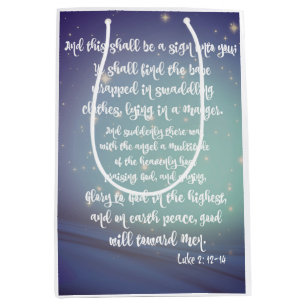 And this shall be a sign unto you;
Ye shall find the babe
wrapped in swaddling
clothes, lying in a manger.
And suddenly there was
with the angel a multitude
of the heavenly host
praising God, and saying,
Glory to God in the highest,
and on earth peace, good
will toward men.
Luke 2: 12-14